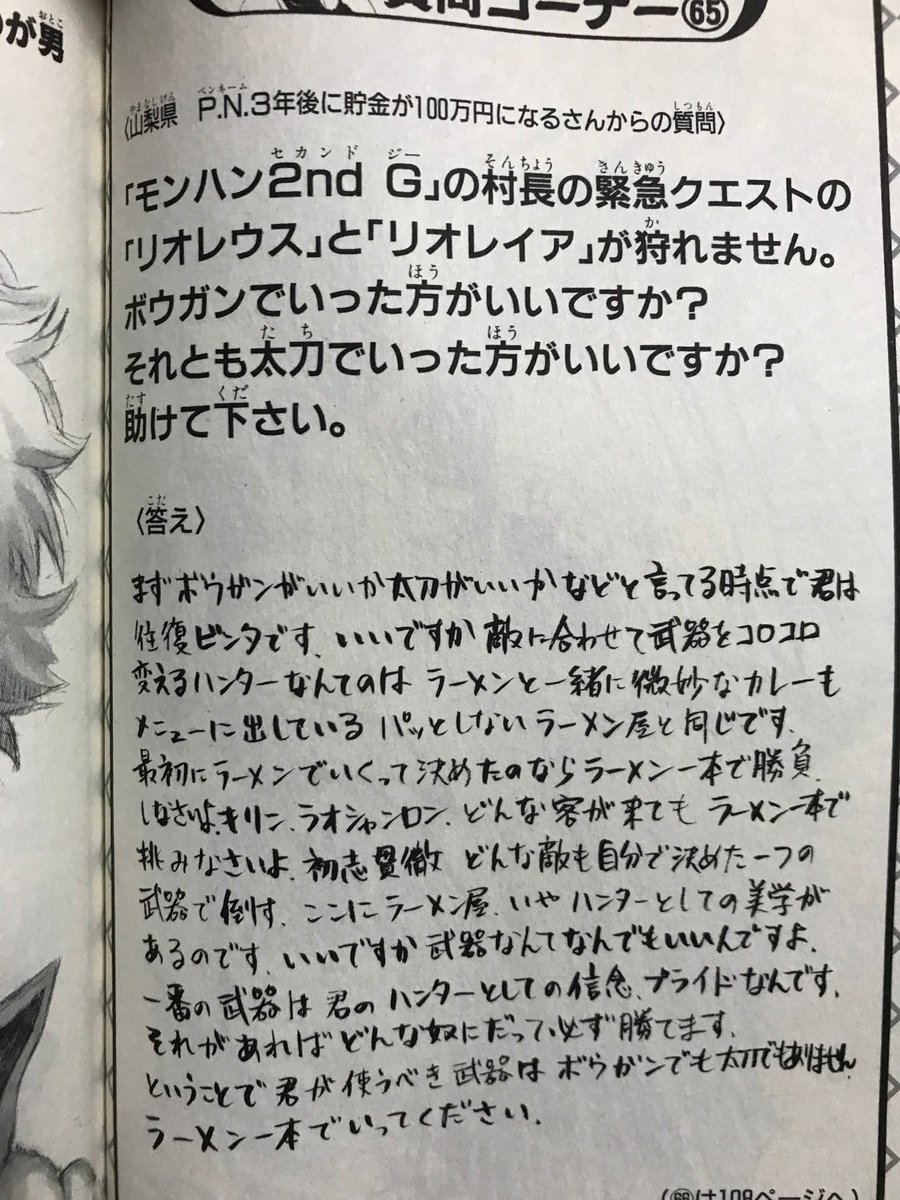 のが男
質問コーナー65
〈山梨県 P.N.3年後に貯金が100万円になるさんからの質問〉
「モンハン2nd G」の村長の緊急クエストの
「リオレウス」と「リオレイア」が狩れません。
ボウガンでいった方がいいですか?
それとも太刀でいった方がいいですか?
助けて下さい。
〈答え〉
まずボウガンがいいか太刀がいいかなどと言ってる時点で君は
往復ビンタです、いいですか敵に合わせて武器をコロコロ
変えるハンターなんてのはラーメンと一緒に微妙なカレーも
メニューに出しているパッとしないラーメン屋と同じです、
最初にラーメンでいくって決めたのならラーメン一本で勝負
しなさいよ、キリン、ラオシャンロン、どんな客が来てもラーメン一本で
挑みなさいよ、初志貫徹 どんな敵も自分で決めた一つの
武器で倒す、ここにラーメン屋、いやハンターとしての美学が
あるのです、いいですか武器なんてなんでもいいんですよ、
一番の武器は君のハンターとしての信念、プライドなんです、
それがあればどんな奴にだって必ず勝てます、
ということで君が使うべき武器はボウガンでも太刀でもありません
ラーメン一本でいってください、
(66は108ページへ)